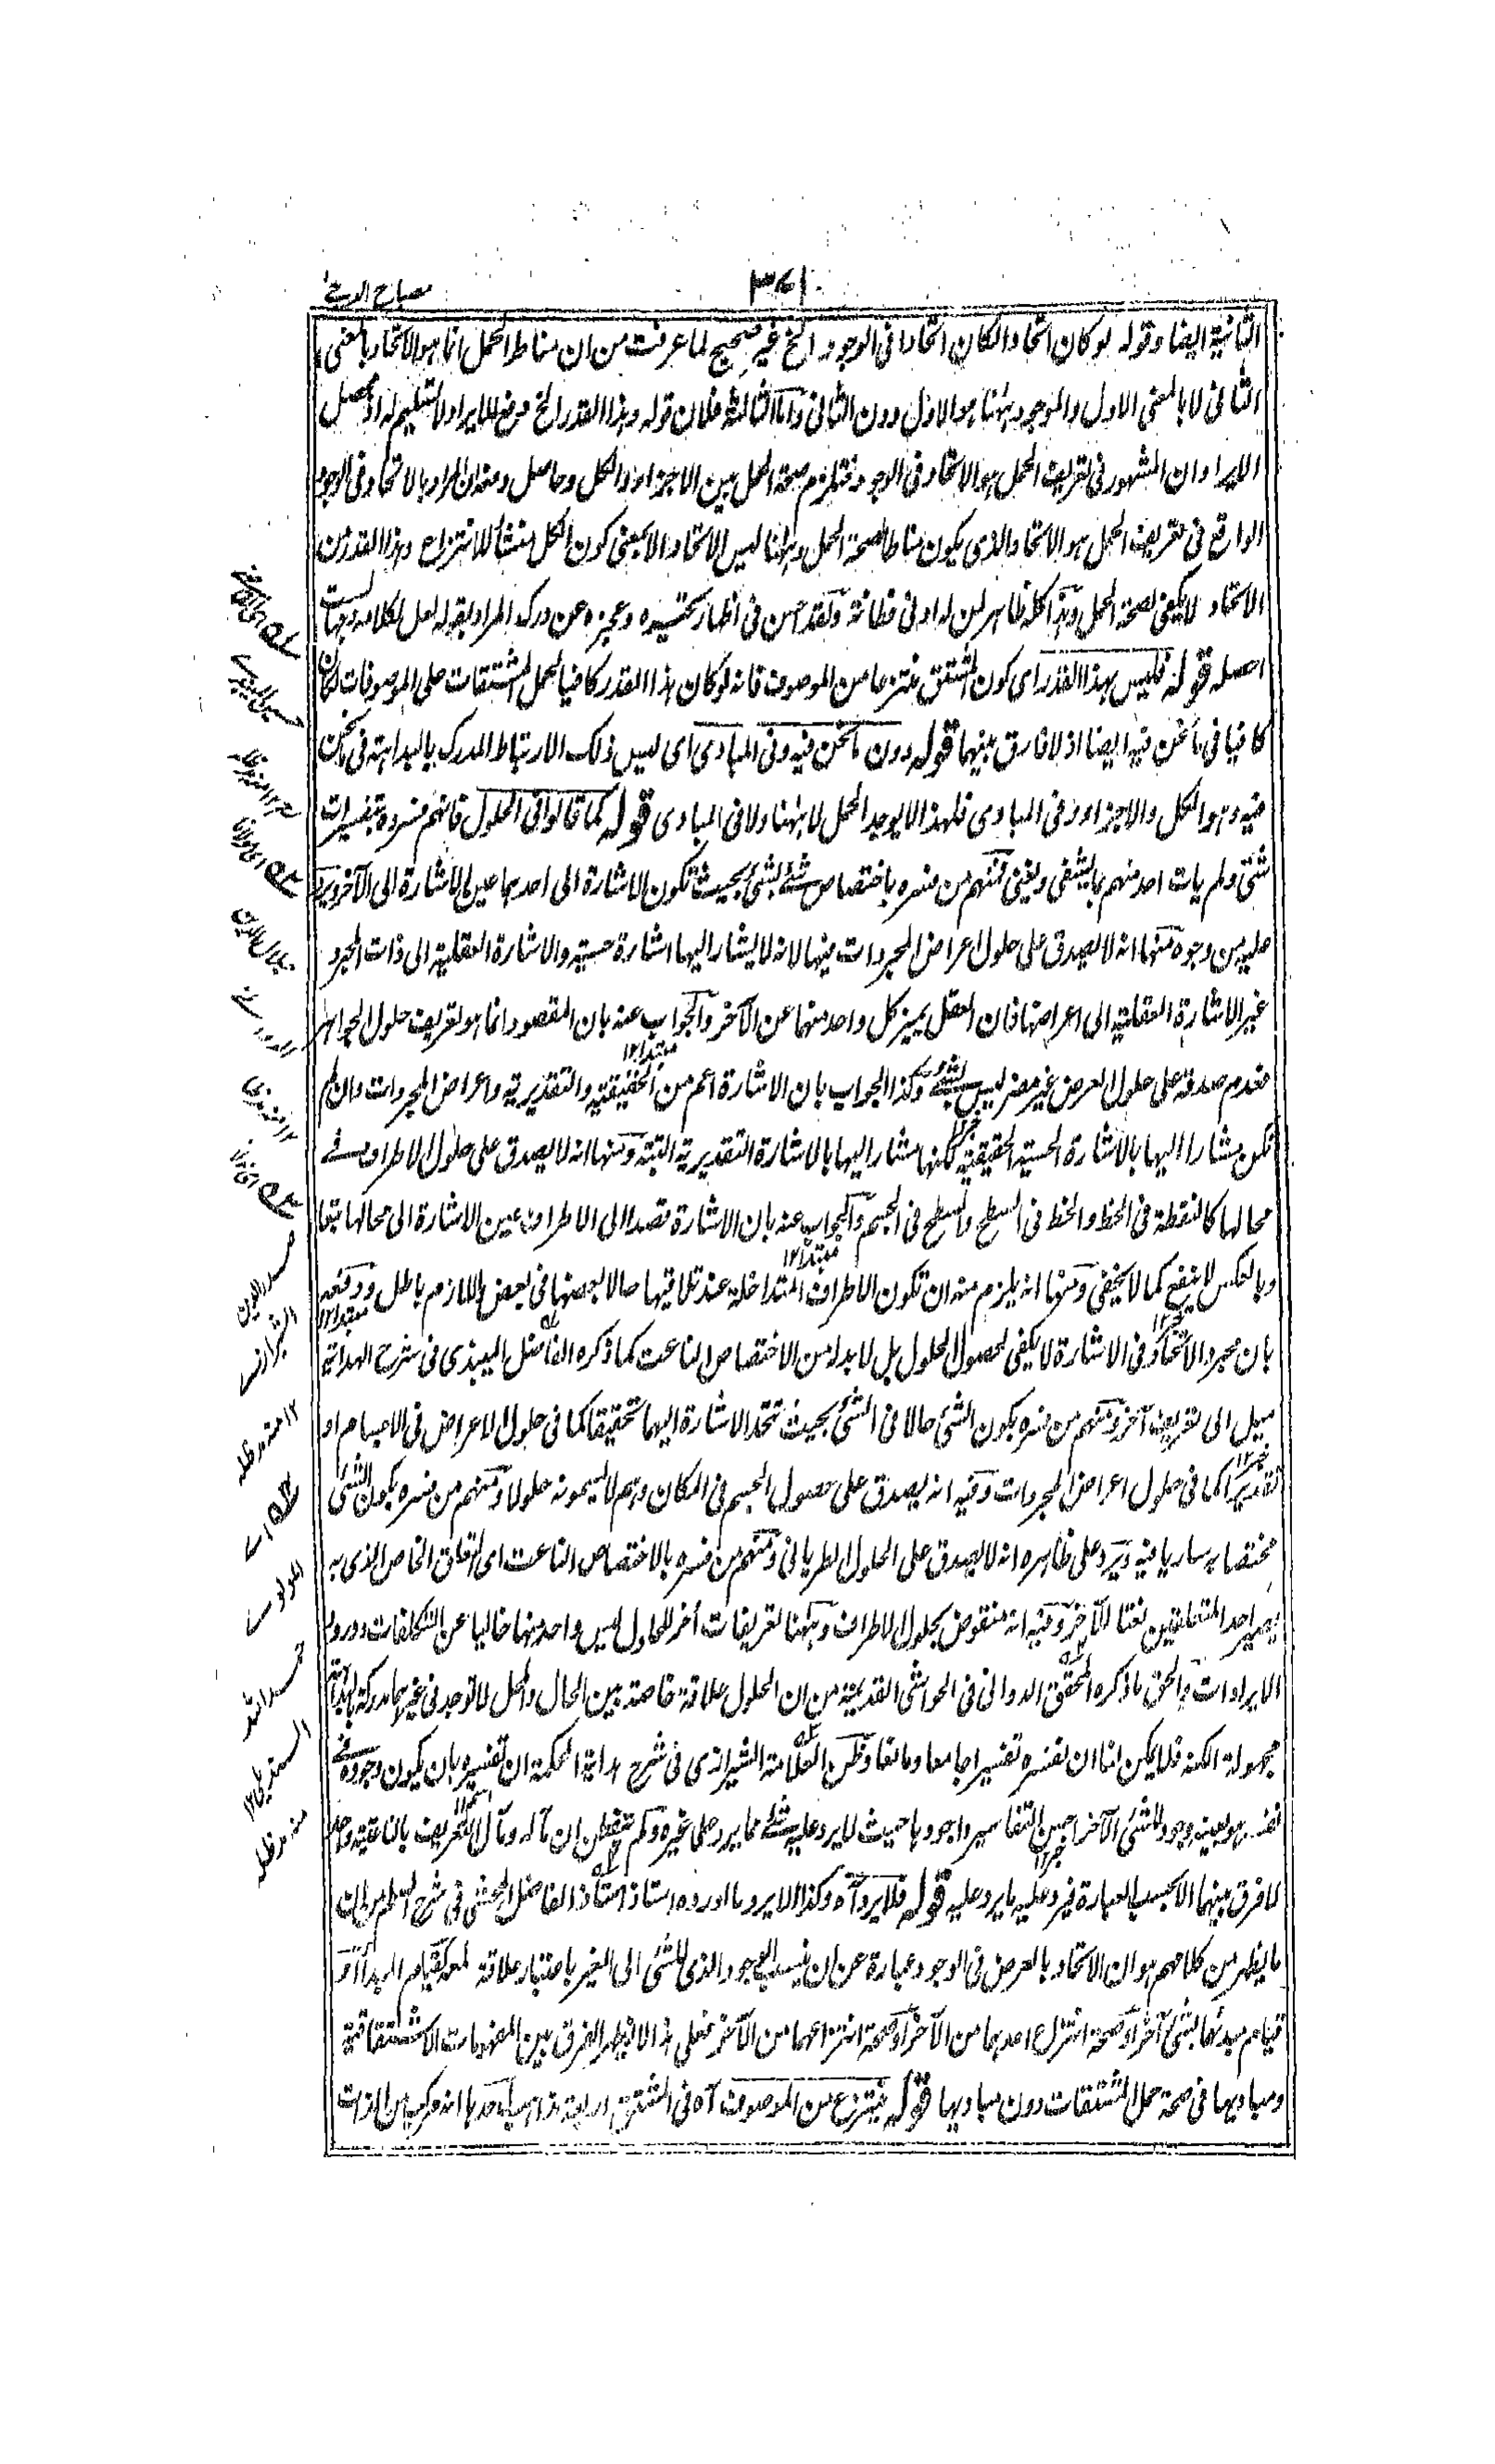 ٣٧١
مصباح الدجى
الثانية ايضا وقوله لو كان اتحادا لكان اتحادا فى الوجود الخ غير صحيح لما عرفت من ان مناط الحمل انما هو الاتحاد بالمعنى
الثانى لا بالمعنى الاول والموجود ههنا هو الاول دون الثانى واما الثالثة فلان قوله وهذا القدر الخ دفع للايراد لا تسليم له اذ محصل
الايراد ان المشهور فى تعريف الحمل هو الاتحاد فى الوجود فتلزم صحة الحمل بين الاجزاء والكل وحاصل دفعه ان المراد بالاتحاد فى الوجود
الواقع فى تعريف الحمل هو الاتحاد الذى يكون مناطا لصحة الحمل وههنا ليس الاتحاد الا بمعنى كون الكل منشأ للانتزاع وهذا القدر من
الاتحاد لا يكفى لصحة الحمل وهذا كله ظاهر لمن له ادنى فطانة ولقد احسن فى اظهار تحيره وعجزه عن درك المراد بقوله لعل لكلامه وجها لست
احصله قوله فليس بهذا القدر اى كون المشتق منتزعا من الموصوف فانه لو كان هذا القدر كافيا لحمل المشتقات على الموصوفات لكان
كافيا فى ما نحن فيه ايضا اذ لا فارق بينهما قوله دون ما نحن فيه وفى المبادى اى ليس ذلك الارتباط المدرك بالبداهة فى ما نحن
فيه وهو الكل والاجزاء وفى المبادى فلهذا لا يوجد الحمل لا ههنا ولا فى المبادى قوله كما قالوا فى الحلول فانهم فسروه بتفسيرات
شتى ولم يات احد منهم بما يشفى ويغنى فمنهم من فسره باختصاص شئ بشئ بحيث تكون الاشارة الى احدهما عين الاشارة الى الآخر ويرد
عليه من وجوه منها انه لا يصدق على حلول اعراض المجردات فيها لانه لا يشار اليها اشارة حسية والاشارة العقلية الى ذات المجرد
غير الاشارة العقلية الى اعراضها فان العقل يميز كل واحد منهما عن الآخر والجواب عنه بان المقصود انما هو تعريف حلول الجواهر
فعدم صدقه على حلول العرض غير مضر ليس بشئ وكذا الجواب بان الاشارة اعم من الحقيقية والتقديرية واعراض المجردات وان لم
تكن مشارا اليها بالاشارة الحسية الحقيقية لكنها مشار اليها بالاشارة التقديرية البتة ومنها انه لا يصدق على حلول الاطراف فى
محالها كالنقطة فى الخط والخط فى السطح والسطح فى الجسم والجواب عنه بان الاشارة قصدا الى الاطراف عين الاشارة الى محالها تبعا
وبالعكس لا ينفع كما لا يخفى ومنها انه يلزم منه ان تكون الاطراف المتداخلة عند تلاقيها حالا بعضها فى بعض واللازم باطل ودفعه
بان مجرد الاتحاد فى الاشارة لا يكفى لحصول الحلول بل لا بد له من الاختصاص الناعت كما ذكره الفاضل الميبذى فى شرح الهداية
ميل الى تعريف آخر ومنهم من فسره بكون الشئ حالا فى الشئ بحيث تتحد الاشارة اليهما تحقيقا كما فى حلول الاعراض فى الاجسام او
تقديرا كما فى حلول اعراض المجردات وفيه انه يصدق على حصول الجسم فى المكان وهم لا يسمونه حلولا ومنهم من فسره بكون الشئ
مختصا به ساريا فيه ويرد على ظاهره انه لا يصدق على الحلول الطريانى ومنهم من فسره بالاختصاص الناعت اى التعلق الخاص الذى به
يصير احد المتعلقين نعتا للآخر وفيه انه منقوض بحلول الاطراف وههنا تعريفات أخر للحلول ليس واحد منها خاليا عن التكلفات دورود
الايرادات والحق ما ذكره المحقق الدوانى فى الحواشى القديمة من ان الحلول علاقة خاصة بين الحال والمحل لا توجد فى غيرهما مدركة بالبداهة
مجهولة الكنه فلا يمكن لنا ان نفسره تفسيرا جامعا ومانعا وظن العلامة الشيرازى فى شرح هداية الحكمة ان تفسيره بان يكون وجوده فى
نفسه هو بعينه وجود للشئ الآخر احسن التفاسير واجودها حيث لا يرد عليه شئ مما يرد على غيره ولم يتفطن ان مآله ومآل التعريف بالناعتية واحد
لا فرق بينهما الا بحسب العبارة فيرد عليه ما يرد عليه قوله فلا يرد آه وكذا لا يرد ما اورده استاذ استاذ الفاضل المحشى فى شرح السلم من ان
ما يظهر من كلامهم هو ان الاتحاد بالعرض فى الوجود عبارة عن ان ينسب الوجود الذى للشئ الى الغير باعتبار علاقة له معه كقيام المبدأ او
قيام مبدئهما بشئ آخر او صحة انتزاع احدهما من الآخر او صحة انتزاعهما من الآخر فعلى هذا لا يظهر الفرق بين المفهومات الاشتقاقية
ومباديها فى صحة حمل المشتقات دون مباديها قوله فينتزع من الموصوف آه فى المشتق اربعة مذاهب احدها انه مركب من الذات
جلال الدين
صدر الدين
الشيرازى
١٢ منه مد ظله
المولوى
حمد الله
السنديلى ١٢
منه مد ظله